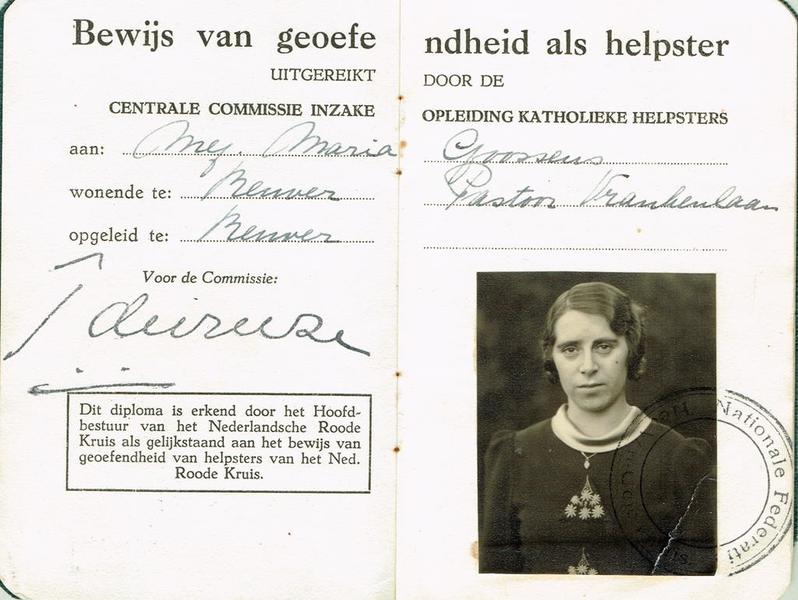 Bewijs van geoefendheid als helpster
UITGEREIKT DOOR DE
CENTRALE COMMISSIE INZAKE OPLEIDING KATHOLIEKE HELPSTERS
aan: Mej. Maria Goossens
wonende te: Reuver Pastoor Vrankenlaan
opgeleid te: Reuver
Voor de Commissie:
Dit diploma is erkend door het Hoofd-
bestuur van het Nederlandsche Roode
Kruis als gelijkstaand aan het bewijs van
geoefendheid van helpsters van het Ned.
Roode Kruis.
Nationale Federati